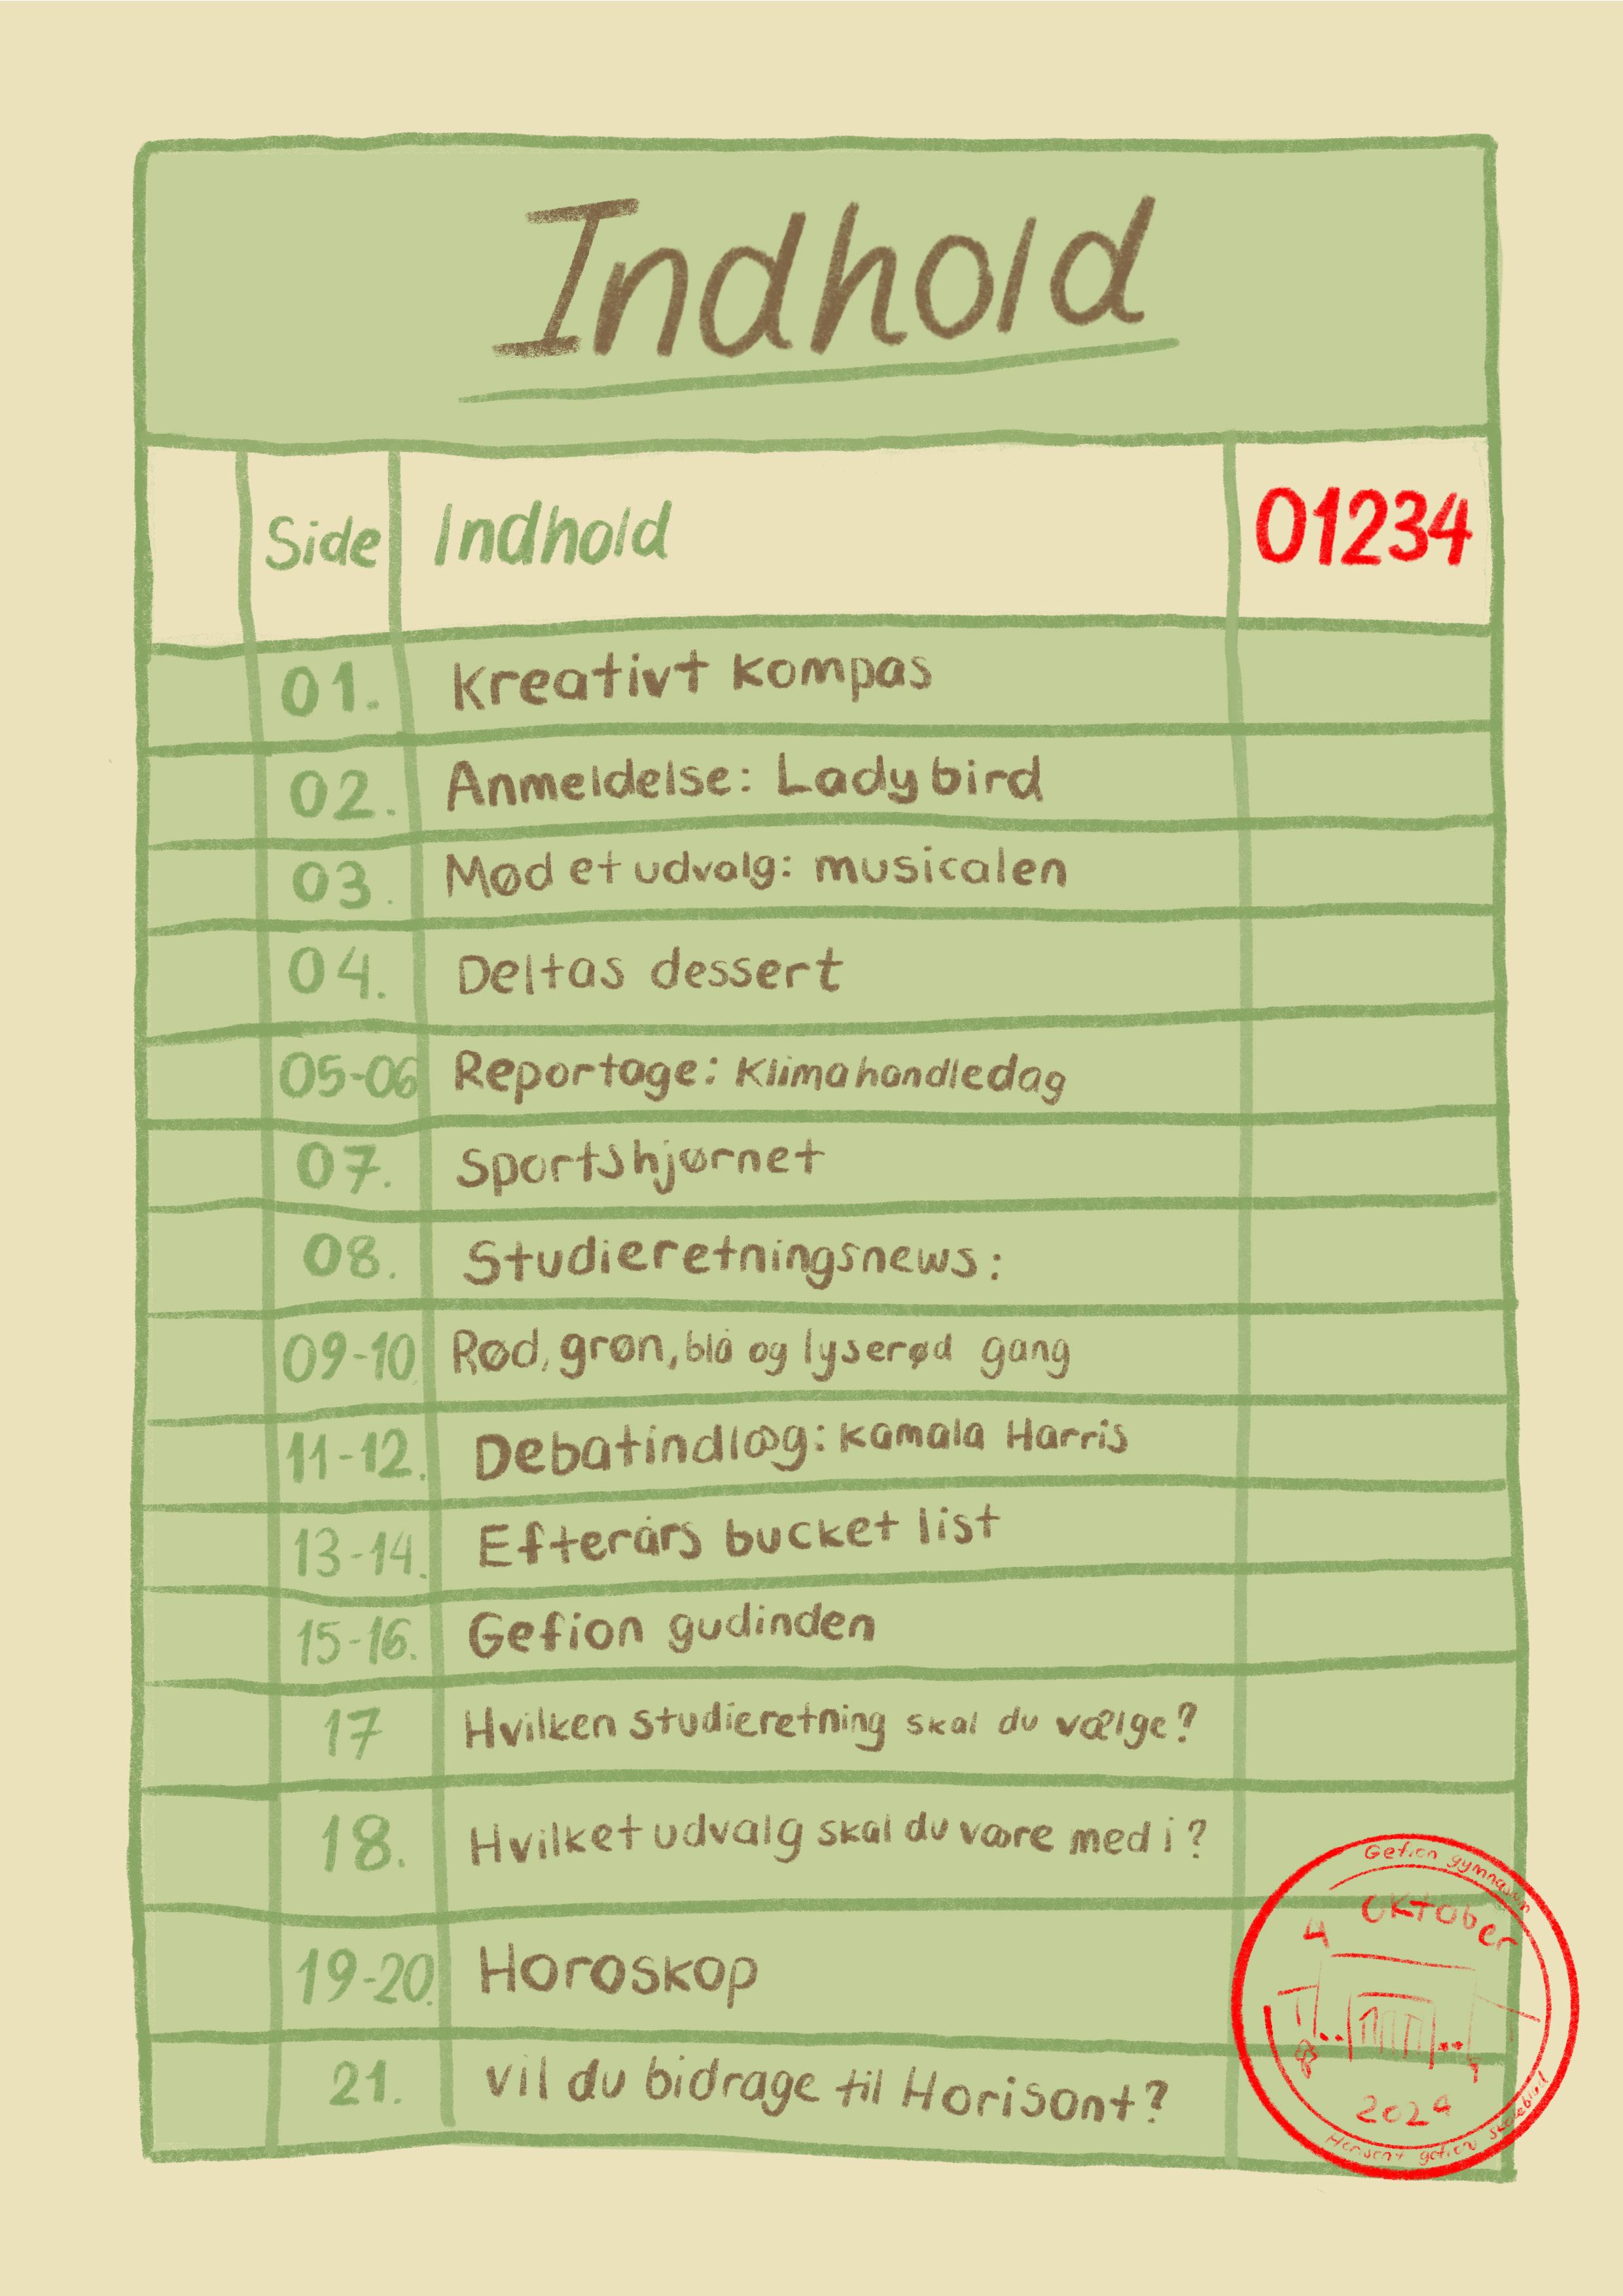 Indhold
Side Indhold 01234
01. Kreativt kompas
02. Anmeldelse: Lady bird
03. Mød et udvalg: musicalen
04. Deltas dessert
05-06 Reportage: Klimahandledag
07. Sportshjørnet
08. Studieretningsnews:
09-10. Rød, grøn, blå og lyserød gang
11-12. Debatindlæg: Kamala Harris
13-14. Efterårs bucket list
15-16. Gefion gudinden
17 Hvilken studieretning skal du vælge?
18. Hvilket udvalg skal du være med i?
19-20. Horoskop
21. vil du bidrage til Horisont?
Gefion gymnasium
4 Oktober
2024
Horisont gefion skoleblad